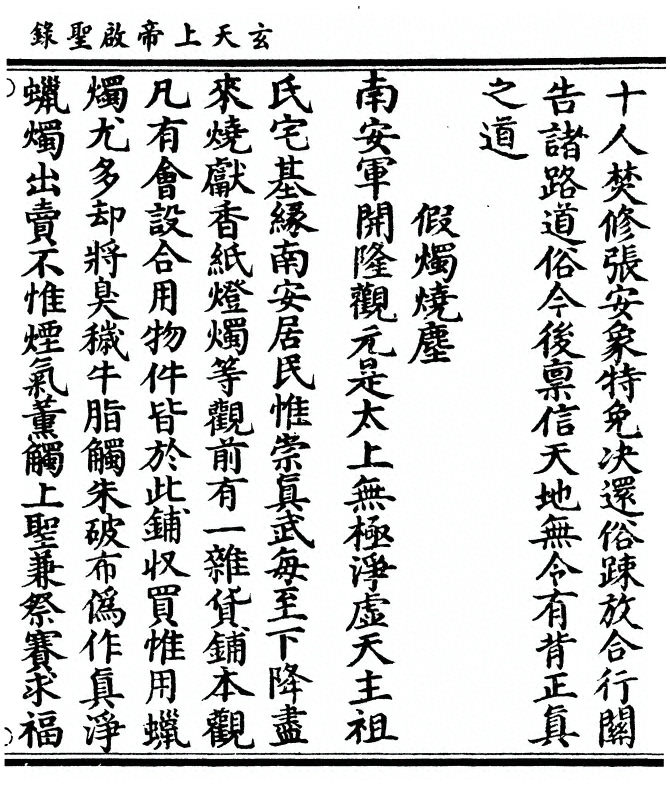 玄天上帝啟聖錄
十人焚修張安象特免決還俗踈放合行關
告諸路道俗今後禀信天地無令有背正真
之道
假燭燒塵
南安軍開隆觀元是太上無極淨虛天主祖
氏宅基緣南安居民惟崇真武每至下降盡
來燒獻香紙燈燭等觀前有一雜貨鋪本觀
凡有會設合用物件皆於此鋪收買惟用蠟
燭尤多却將臭穢牛脂觸朱破布偽作真淨
蠟燭出賣不惟煙氣薰觸上聖兼祭賽求福